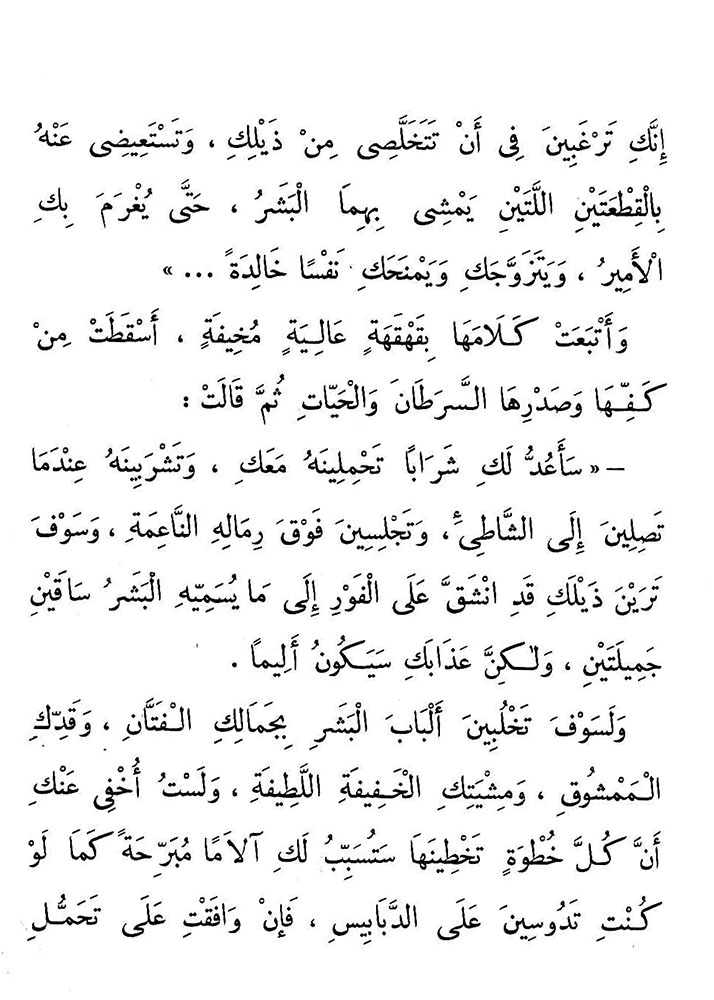 إِنَّكِ تَرْغَبِينَ فِى أَنْ تَتَخَلَّصِى مِنْ ذَيْلِكِ ، وَتَسْتَعِيضِى عَنْهُ
بِالْقِطْعَتَيْنِ اللَّتَيْنِ يَمْشِى بِهِمَا الْبَشَرُ ، حَتَّى يُغْرَمَ بِكِ
الْأَمِيرُ ، وَيَتَزَوَّجَكِ وَيَمْنَحَكِ نَفْسًا خَالِدَةً ... »
وَأَتْبَعَتْ كَلَامَهَا بِقَهْقَهَةٍ عَالِيَةٍ مُخِيفَةٍ ، أَسْقَطَتْ مِنْ
كَفِّهَا وَصَدْرِهَا السَّرَطَانَ وَالْحَيَّاتِ ثُمَّ قَالَتْ :
– « سَأَعُدُّ لَكِ شَرَابًا تَحْمِلِينَهُ مَعَكِ ، وَتَشْرَبِينَهُ عِنْدَمَا
تَصِلِينَ إِلَى الشَّاطِئِ ، وَتَجْلِسِينَ فَوْقَ رِمَالِهِ النَّاعِمَةِ ، وَسَوْفَ
تَرَيْنَ ذَيْلَكِ قَدِ انْشَقَّ عَلَى الْفَوْرِ إِلَى مَا يُسَمِّيهِ الْبَشَرُ سَاقَيْنِ
جَمِيلَتَيْنِ ، وَلٰكِنَّ عَذَابَكِ سَيَكُونُ أَلِيماً .
وَلَسَوْفَ تَخْلُبِينَ أَلْبَابَ الْبَشَرِ بِجَمَالِكِ الْفَتَّانِ ، وَقَدِّكِ
الْمَمْشُوقِ ، وَمِشْيَتِكِ الْخَفِيفَةِ اللَّطِيفَةِ ، وَلَسْتُ أُخْفِى عَنْكِ
أَنَّ كُلَّ خُطْوَةٍ تَخْطِينَهَا سَتُسَبِّبُ لَكِ آلَامًا مُبَرِّحَةً كَمَا لَوْ
كُنْتِ تَدُوسِينَ عَلَى الدَّبَابِيسِ ، فَإِنْ وَافَقْتِ عَلَى تَحَمُّلِ